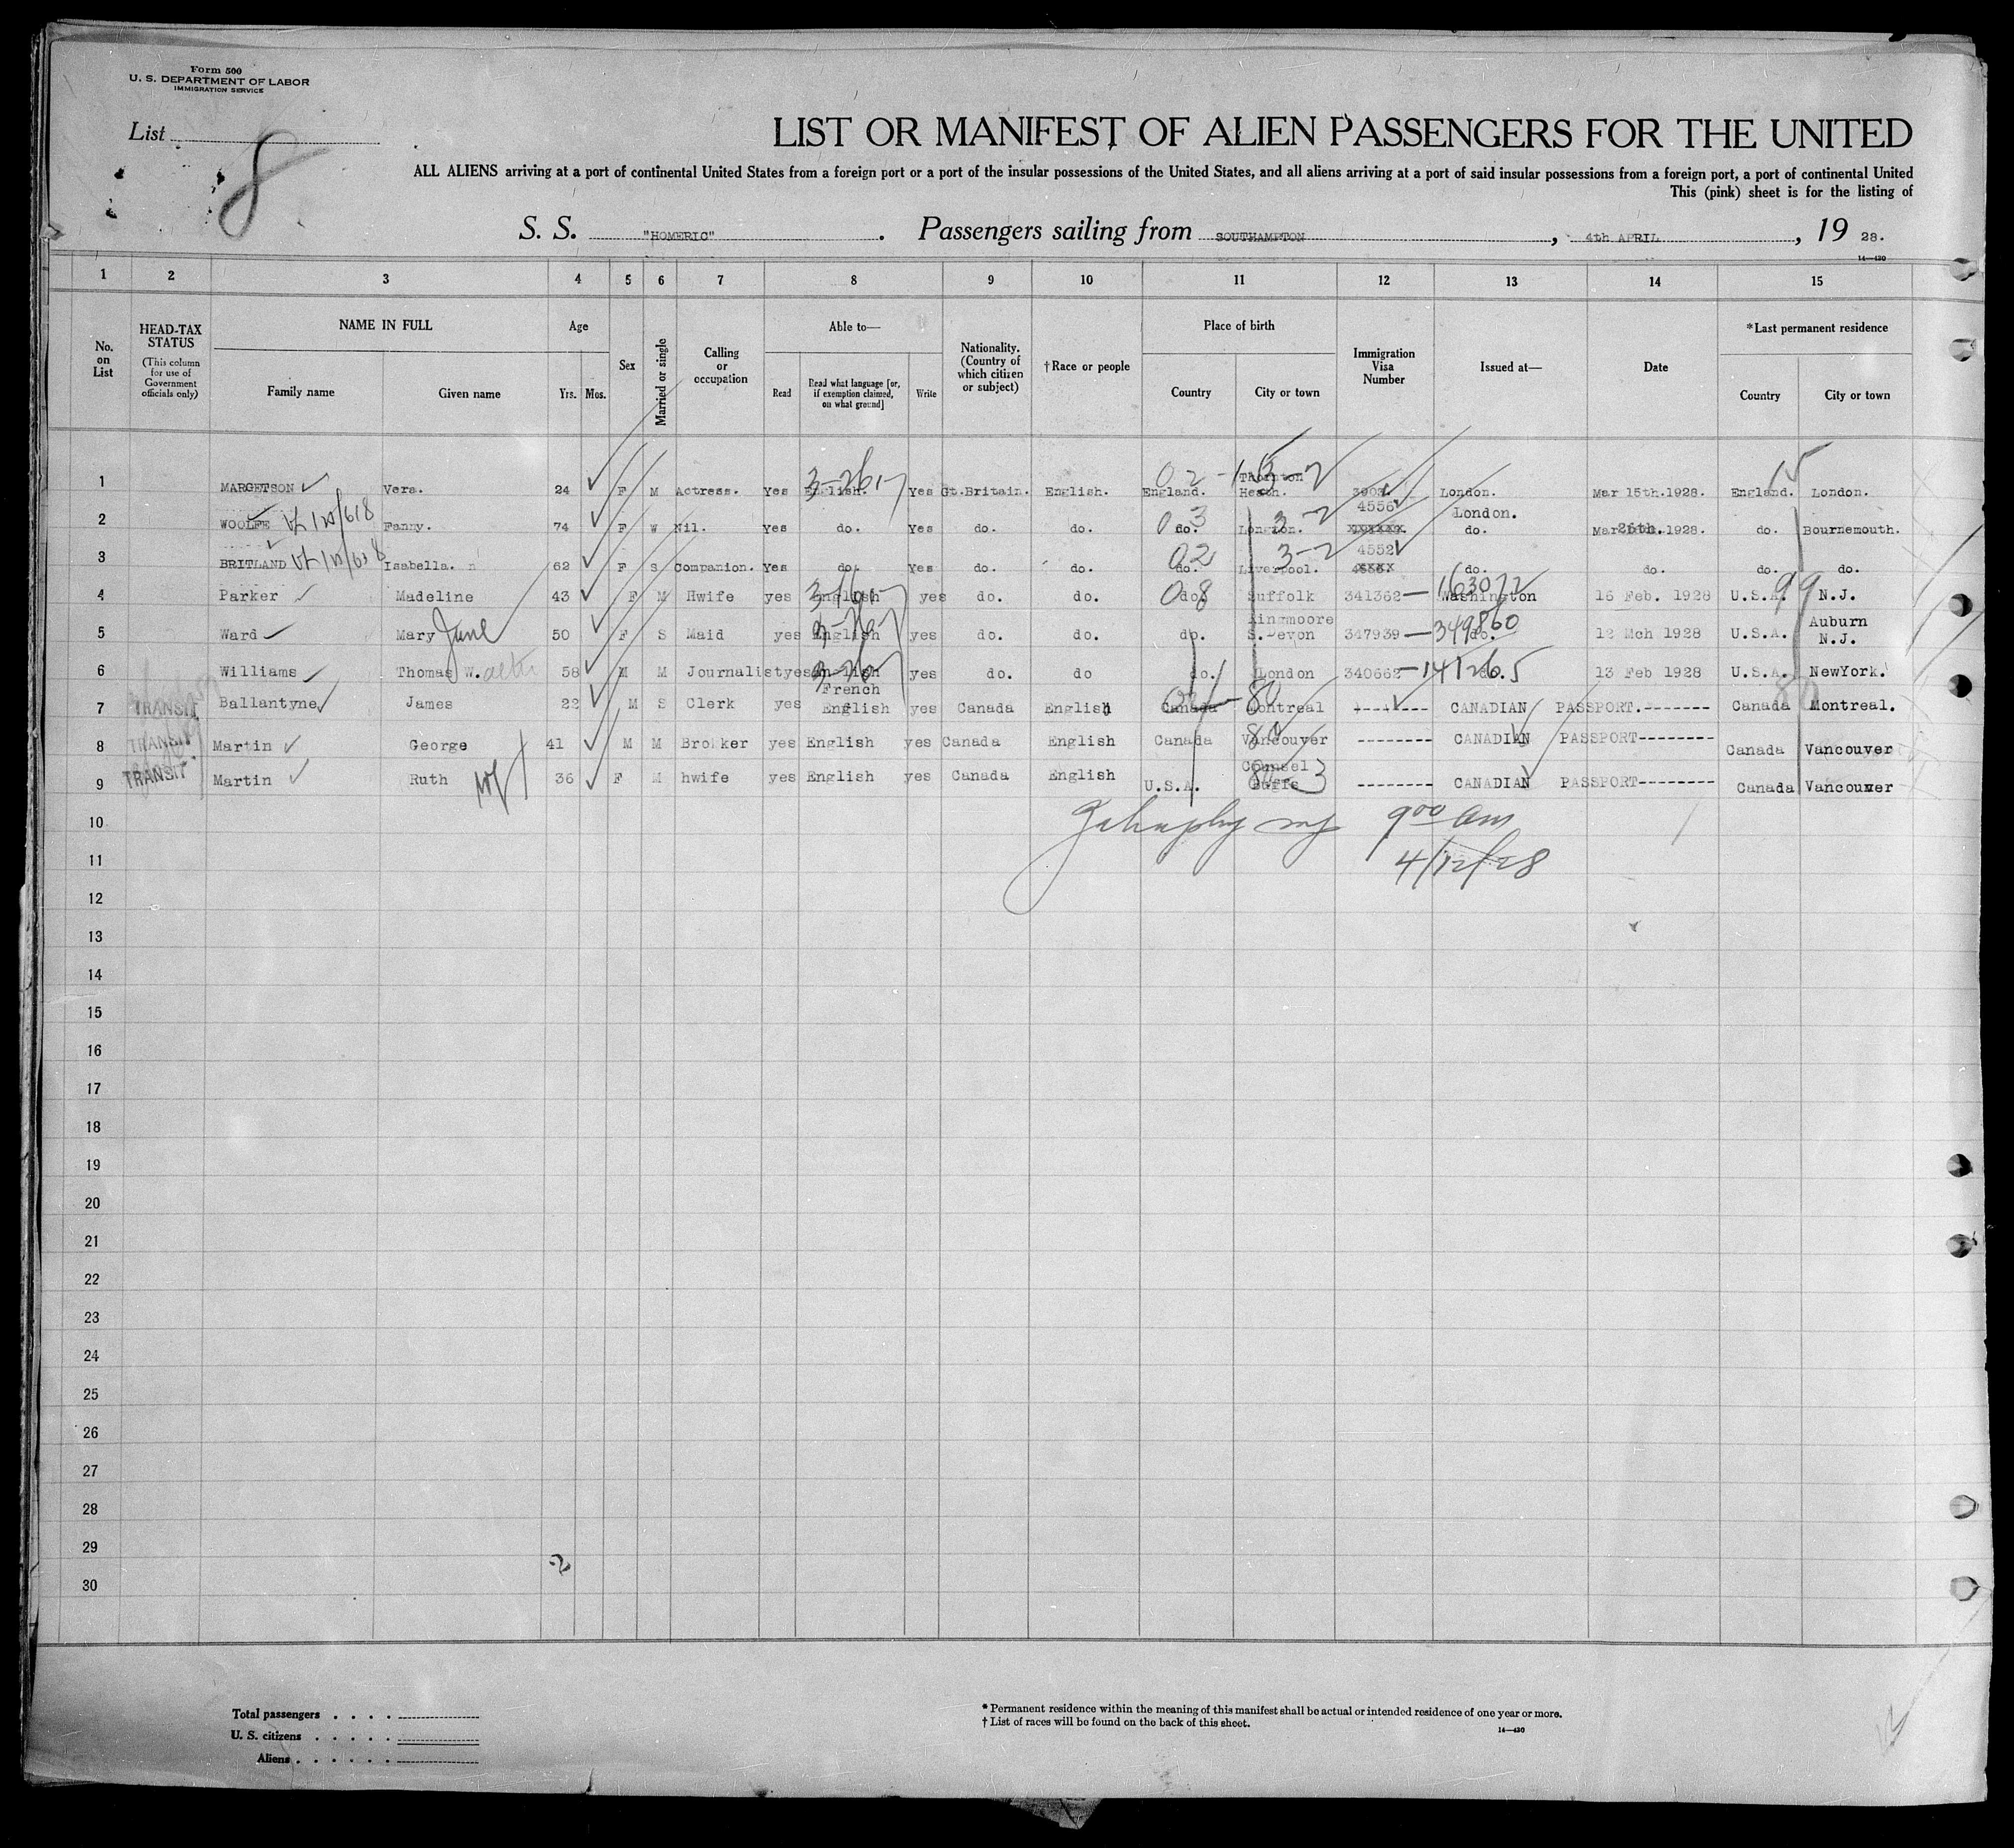 Form 500
U. S. DEPARTMENT OF LABOR
IMMIGRATION SERVICE
List 8
LIST OR MANIFEST OF ALIEN PASSENGERS FOR THE UNITED
ALL ALIENS arriving at a port of continental United States from a foreign port or a port of the insular possessions of the United States, and all aliens arriving at a port of said insular possessions from a foreign port, a port of continental United
This (pink) sheet is for the listing of
S. S. "HOMERIC". Passengers sailing from SOUTHAMPTON, 4th APRIL, 19 28.
14—430
1 2 3 4 5 6 7 8 9 10 11 12 13 14 15
No. on List
HEAD-TAX STATUS (This column for use of Government officials only)
NAME IN FULL Family name Given name
Age Yrs. Mos.
Sex
Married or single
Calling or occupation
Able to— Read Read what language [or, if exemption claimed, on what ground] Write
Nationality. (Country of which citizen or subject)
†Race or people
Place of birth Country City or town
Immigration Visa Number
Issued at—
Date
*Last permanent residence Country City or town
1 MARGETSON Vera. 24 F M Actress. Yes English. 3-26 Yes Gt.Britain. English. England. Thornton Heath. London. Mar 15th.1928. England. London.
2 WOOLFE Fanny. 74 F W Nil. Yes do. Yes do. do. do. 4556 London. do. Mar 26th.1928. do. Bournemouth.
3 BRITLAND Isabella. 62 F S Companion. Yes do. Yes do. do. do. Liverpool. 4552 do. do. do. do.
4 Parker Madeline 43 F M Hwife yes English yes do. do. do. Suffolk 341362—163072 Washington 16 Feb. 1928 U.S.A. 99 N.J.
5 Ward Mary June 50 F S Maid yes English yes do. do. do. Kingmoore S.Devon 347939—349860 do. 12 Mch 1928 U.S.A. Auburn N.J.
6 Williams Thomas W. 58 M M Journalist yes English yes do. do do. London 340662—141265 do. 13 Feb 1928 U.S.A. NewYork.
7 TRANSIT Ballantyne James 22 M S Clerk yes French English yes Canada English Canada Montreal -------- CANADIAN PASSPORT.------- Canada Montreal.
8 TRANSIT Martin George 41 M M Broker yes English yes Canada English Canada Vancouver -------- CANADIAN PASSPORT-------- Canada Vancouver
9 TRANSIT Martin Ruth 36 F M hwife yes English yes Canada English U.S.A. Counsel Buffs -------- CANADIAN PASSPORT-------- Canada Vancouver
10 9 00 am
11 4/12/28
12
13
14
15
16
17
18
19
20
21
22
23
24
25
26
27
28
29
30
2
Total passengers . . . .
U. S. citizens . . . . .
Aliens . . . . . .
* Permanent residence within the meaning of this manifest shall be actual or intended residence of one year or more.
† List of races will be found on the back of this sheet.
14—430